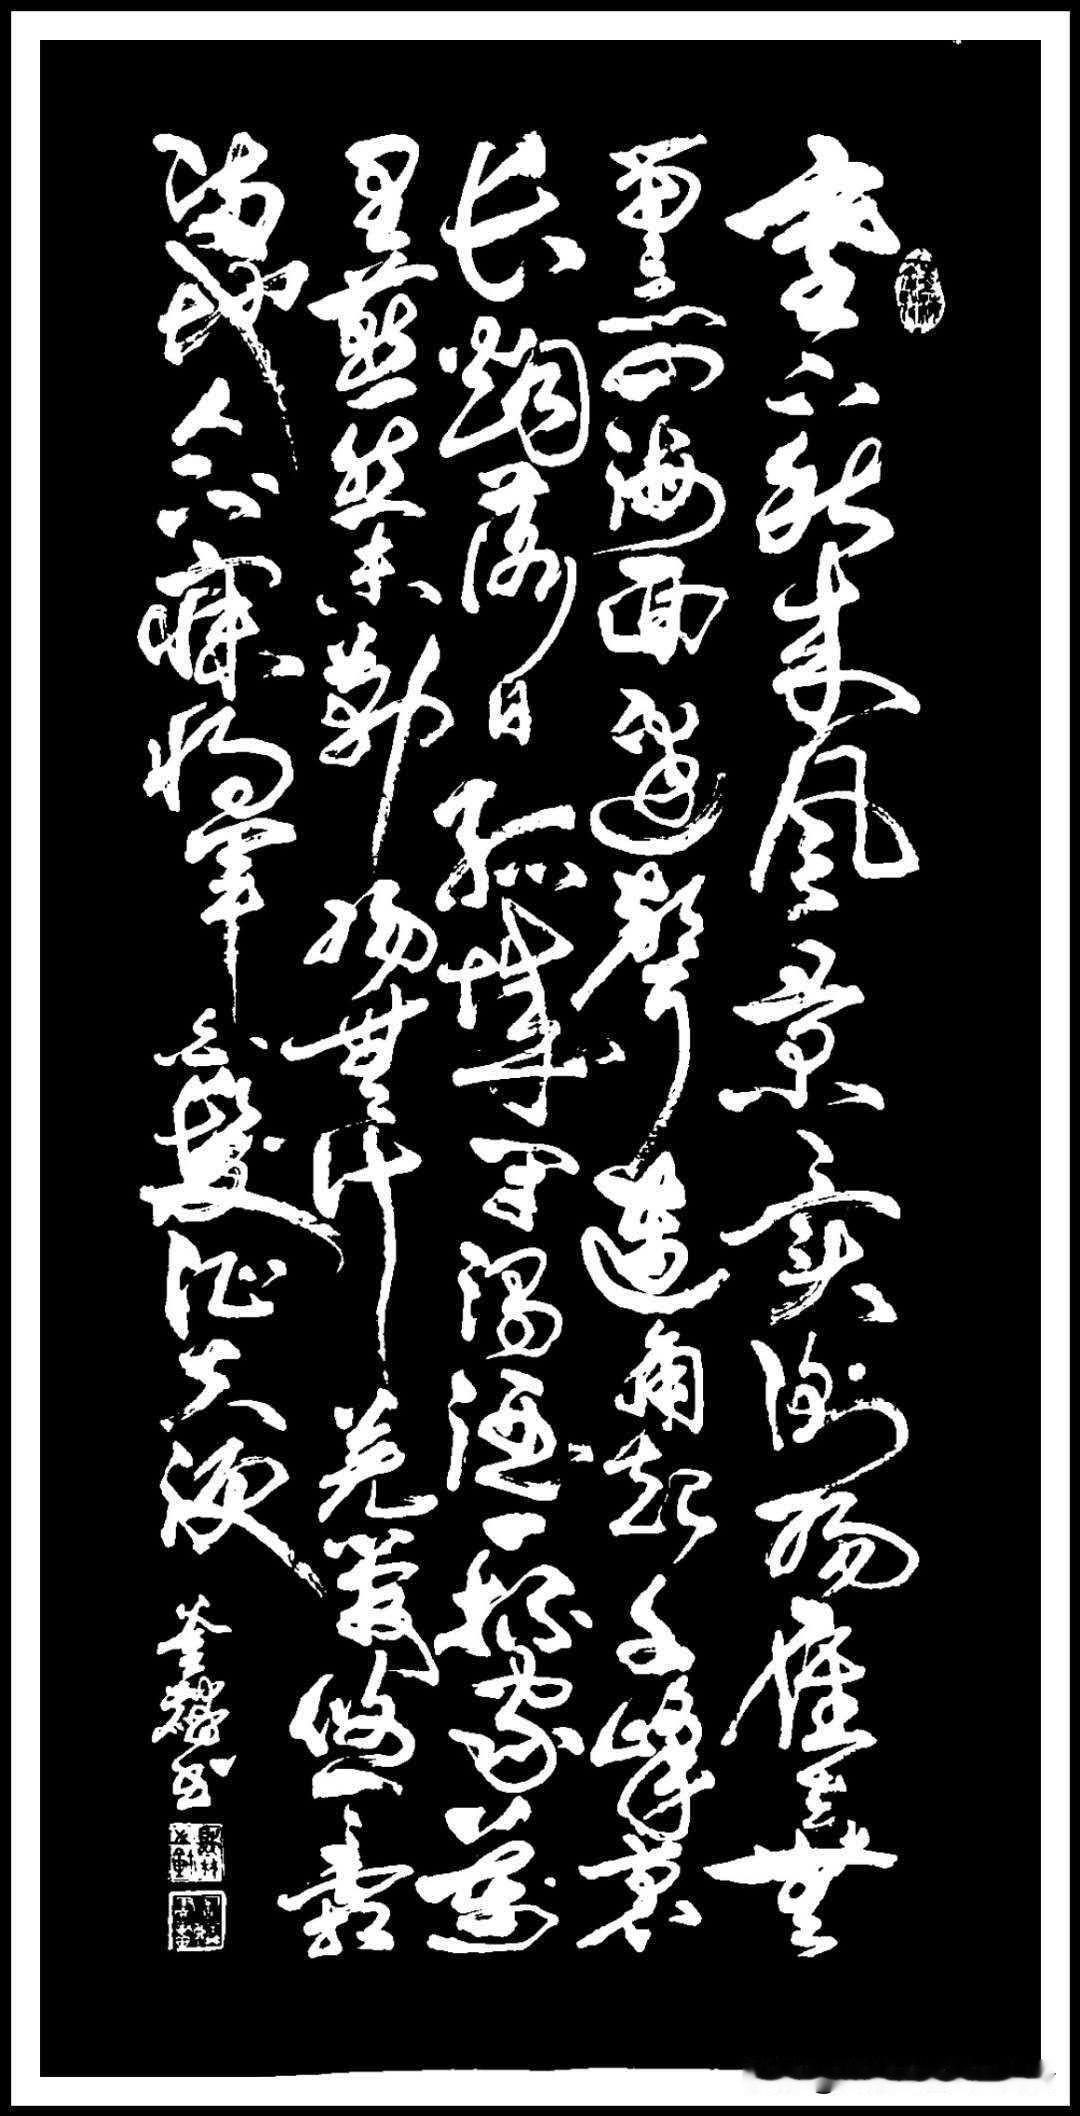 塞下秋来风景异衡阳雁去無
留意四海面邊聲連角起千峰裏
长烟落日孤城闭浊酒一杯家萬
里燕然未勒归無计羌管悠悠霜
满地人不寐将军白發征夫泪